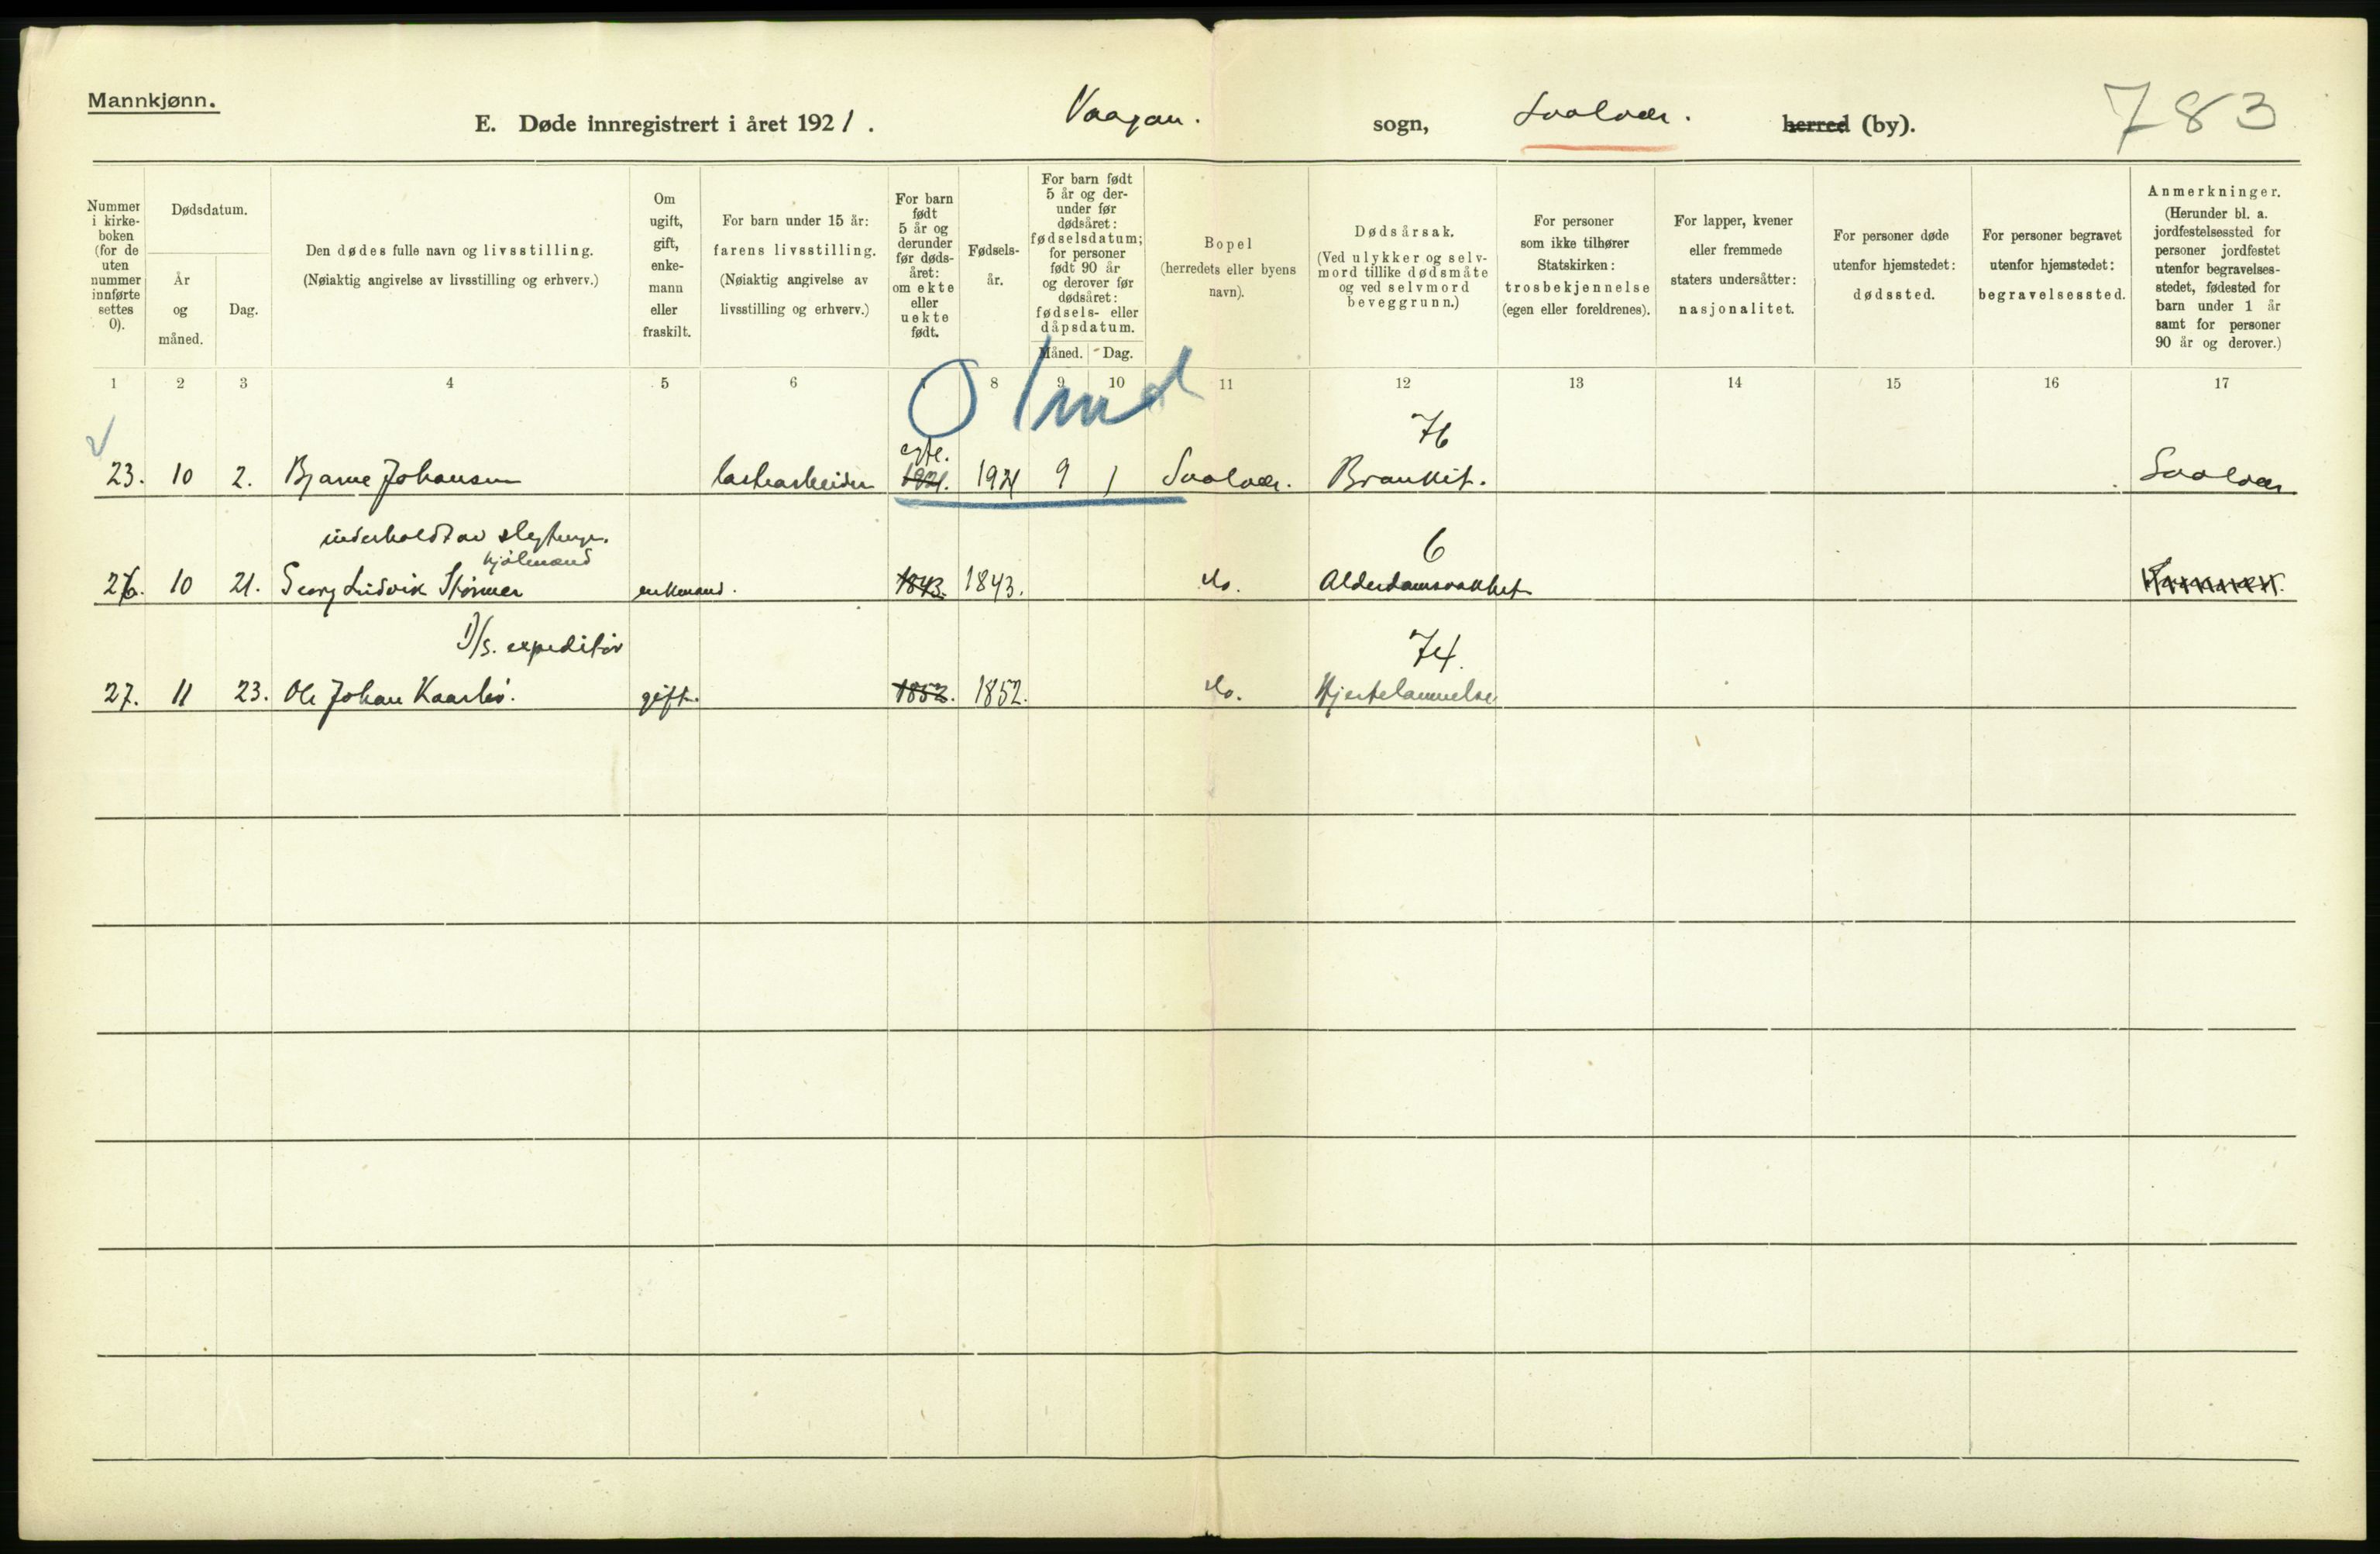 Mannkjønn.
E. Døde innregistrert i året 1921. Vaagan. sogn, Svolvær. herred (by). 783
Nummer i kirke-boken (for de uten nummer innførte settes 0).
Dødsdatum.
År og måned.
Dag.
Den dødes fulle navn og livsstilling.
(Nøiaktig angivelse av livsstilling og erhverv.)
Om ugift, gift, enke-mann eller fraskilt.
For barn under 15 år: farens livsstilling.
(Nøiaktig angivelse av livsstilling og erhverv.)
For barn født 5 år og derunder før døds-året: om ekte eller uekte født.
Fødsels-år.
For barn født 5 år og der-under før dødsåret: fødselsdatum; for personer født 90 år og derover før dødsåret: fødsels- eller dåpsdatum.
Måned. Dag.
Bopel (herredets eller byens navn).
Dødsårsak.
(Ved ulykker og selv-mord tillike dødsmåte og ved selvmord beveggrunn.)
For personer som ikke tilhører Statskirken: trosbekjennelse (egen eller foreldrenes).
For lapper, kvener eller fremmede staters undersåtter: nasjonalitet.
For personer døde utenfor hjemstedet: dødssted.
For personer begravet utenfor hjemstedet: begravelsessted.
Anmerkninger.
(Herunder bl. a. jordfestelsessted for personer jordfestet utenfor begravelses-stedet, fødested for barn under 1 år samt for personer 90 år og derover.)
1 2 3 4 5 6 8 9 10 11 12 13 14 15 16 17
0 1 md
76
egte.
23. 10 2. Bjarne Johansen lastearbeider 1921. 1921 9 1 Svolvær. Bronkit. Svolvær
underholdt av slegtninge. 6
26. 10 21. Georg Ludvik Størmer enkemand. 1843. 1843. do. Alderdomssvakhet
D/S. expeditør 74.
27. 11 23. Ole Johan Kaarbø. gift. 1852. 1852. do. Hjertelammelse